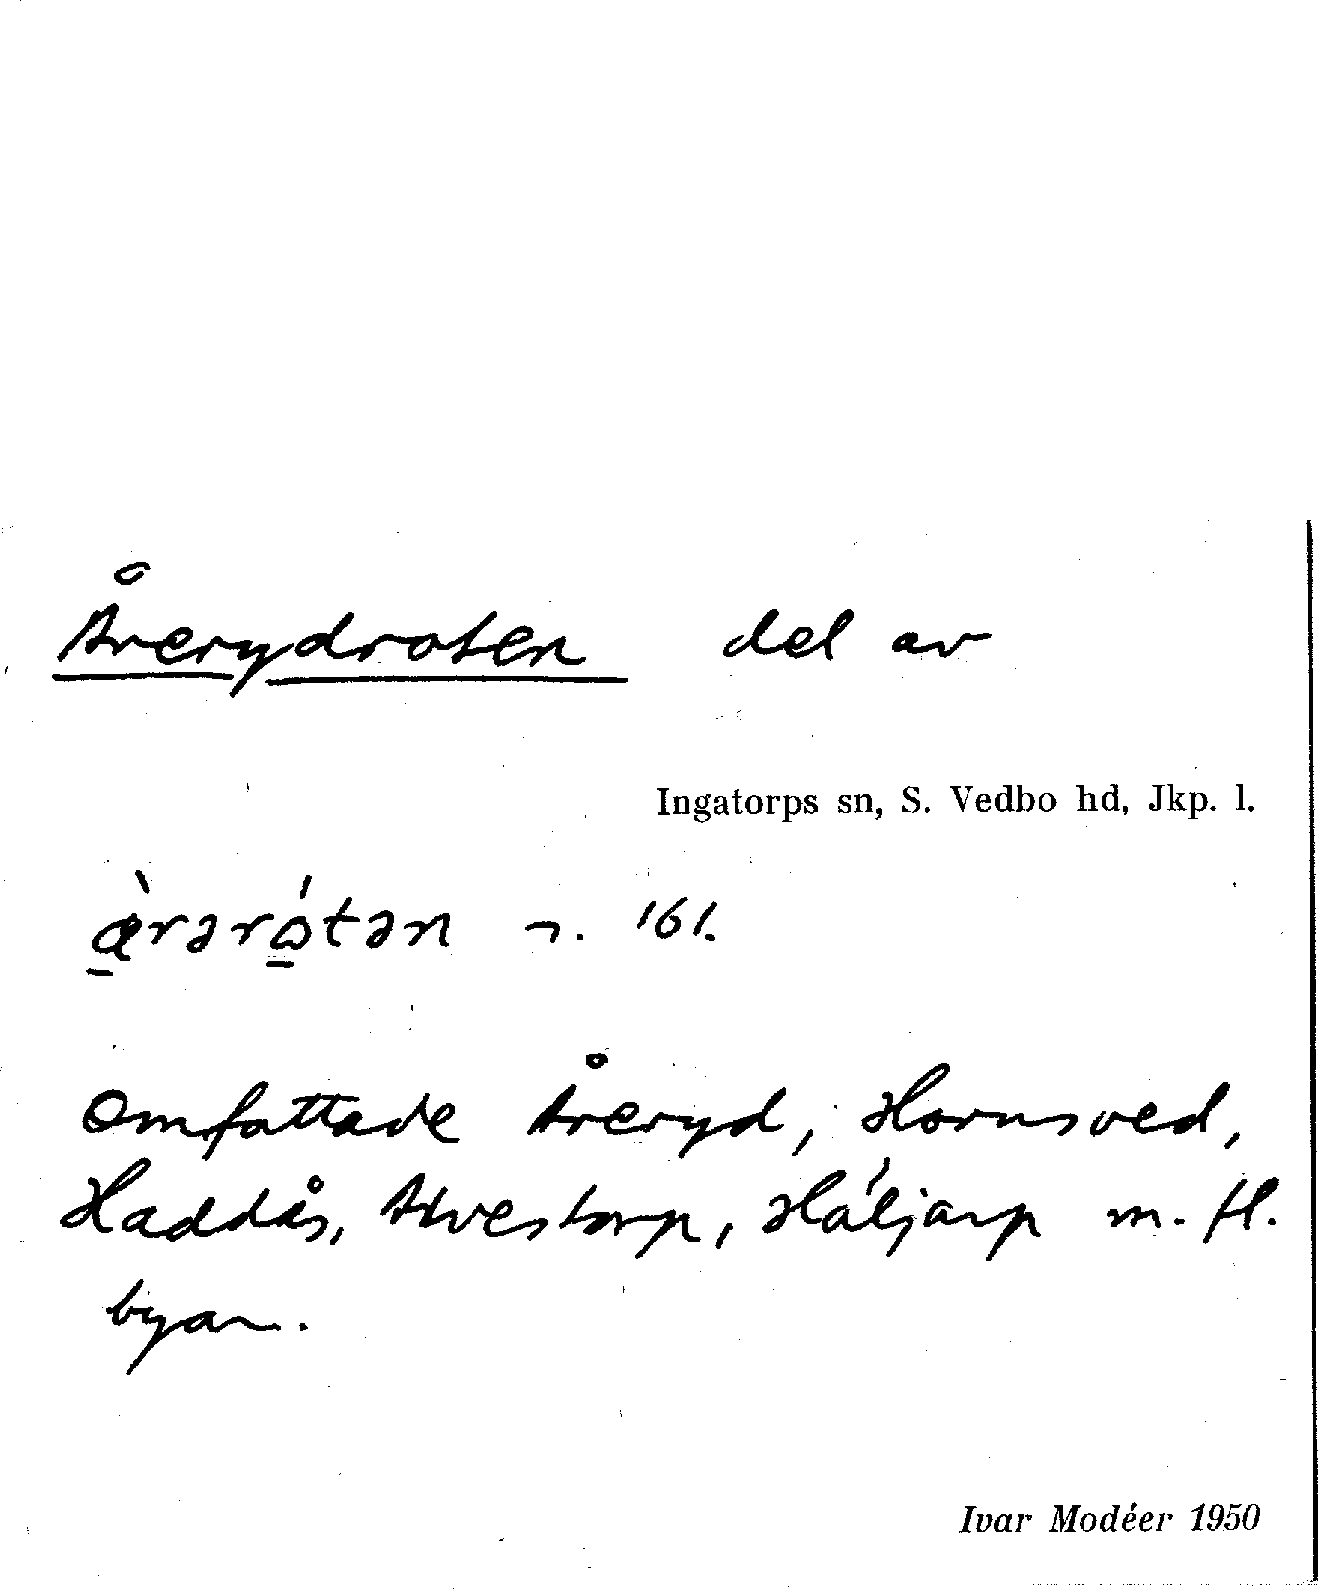 Årerydroten del av
Ingatorps sn, S. Vedbo hd, Jkp. l.
æ̀rərótən 161.
Omfattade Åreryd, Hornsved,
Haddås, Alvestorp, Háljarp m. fl.
byar.
Ivar Modéer 1950